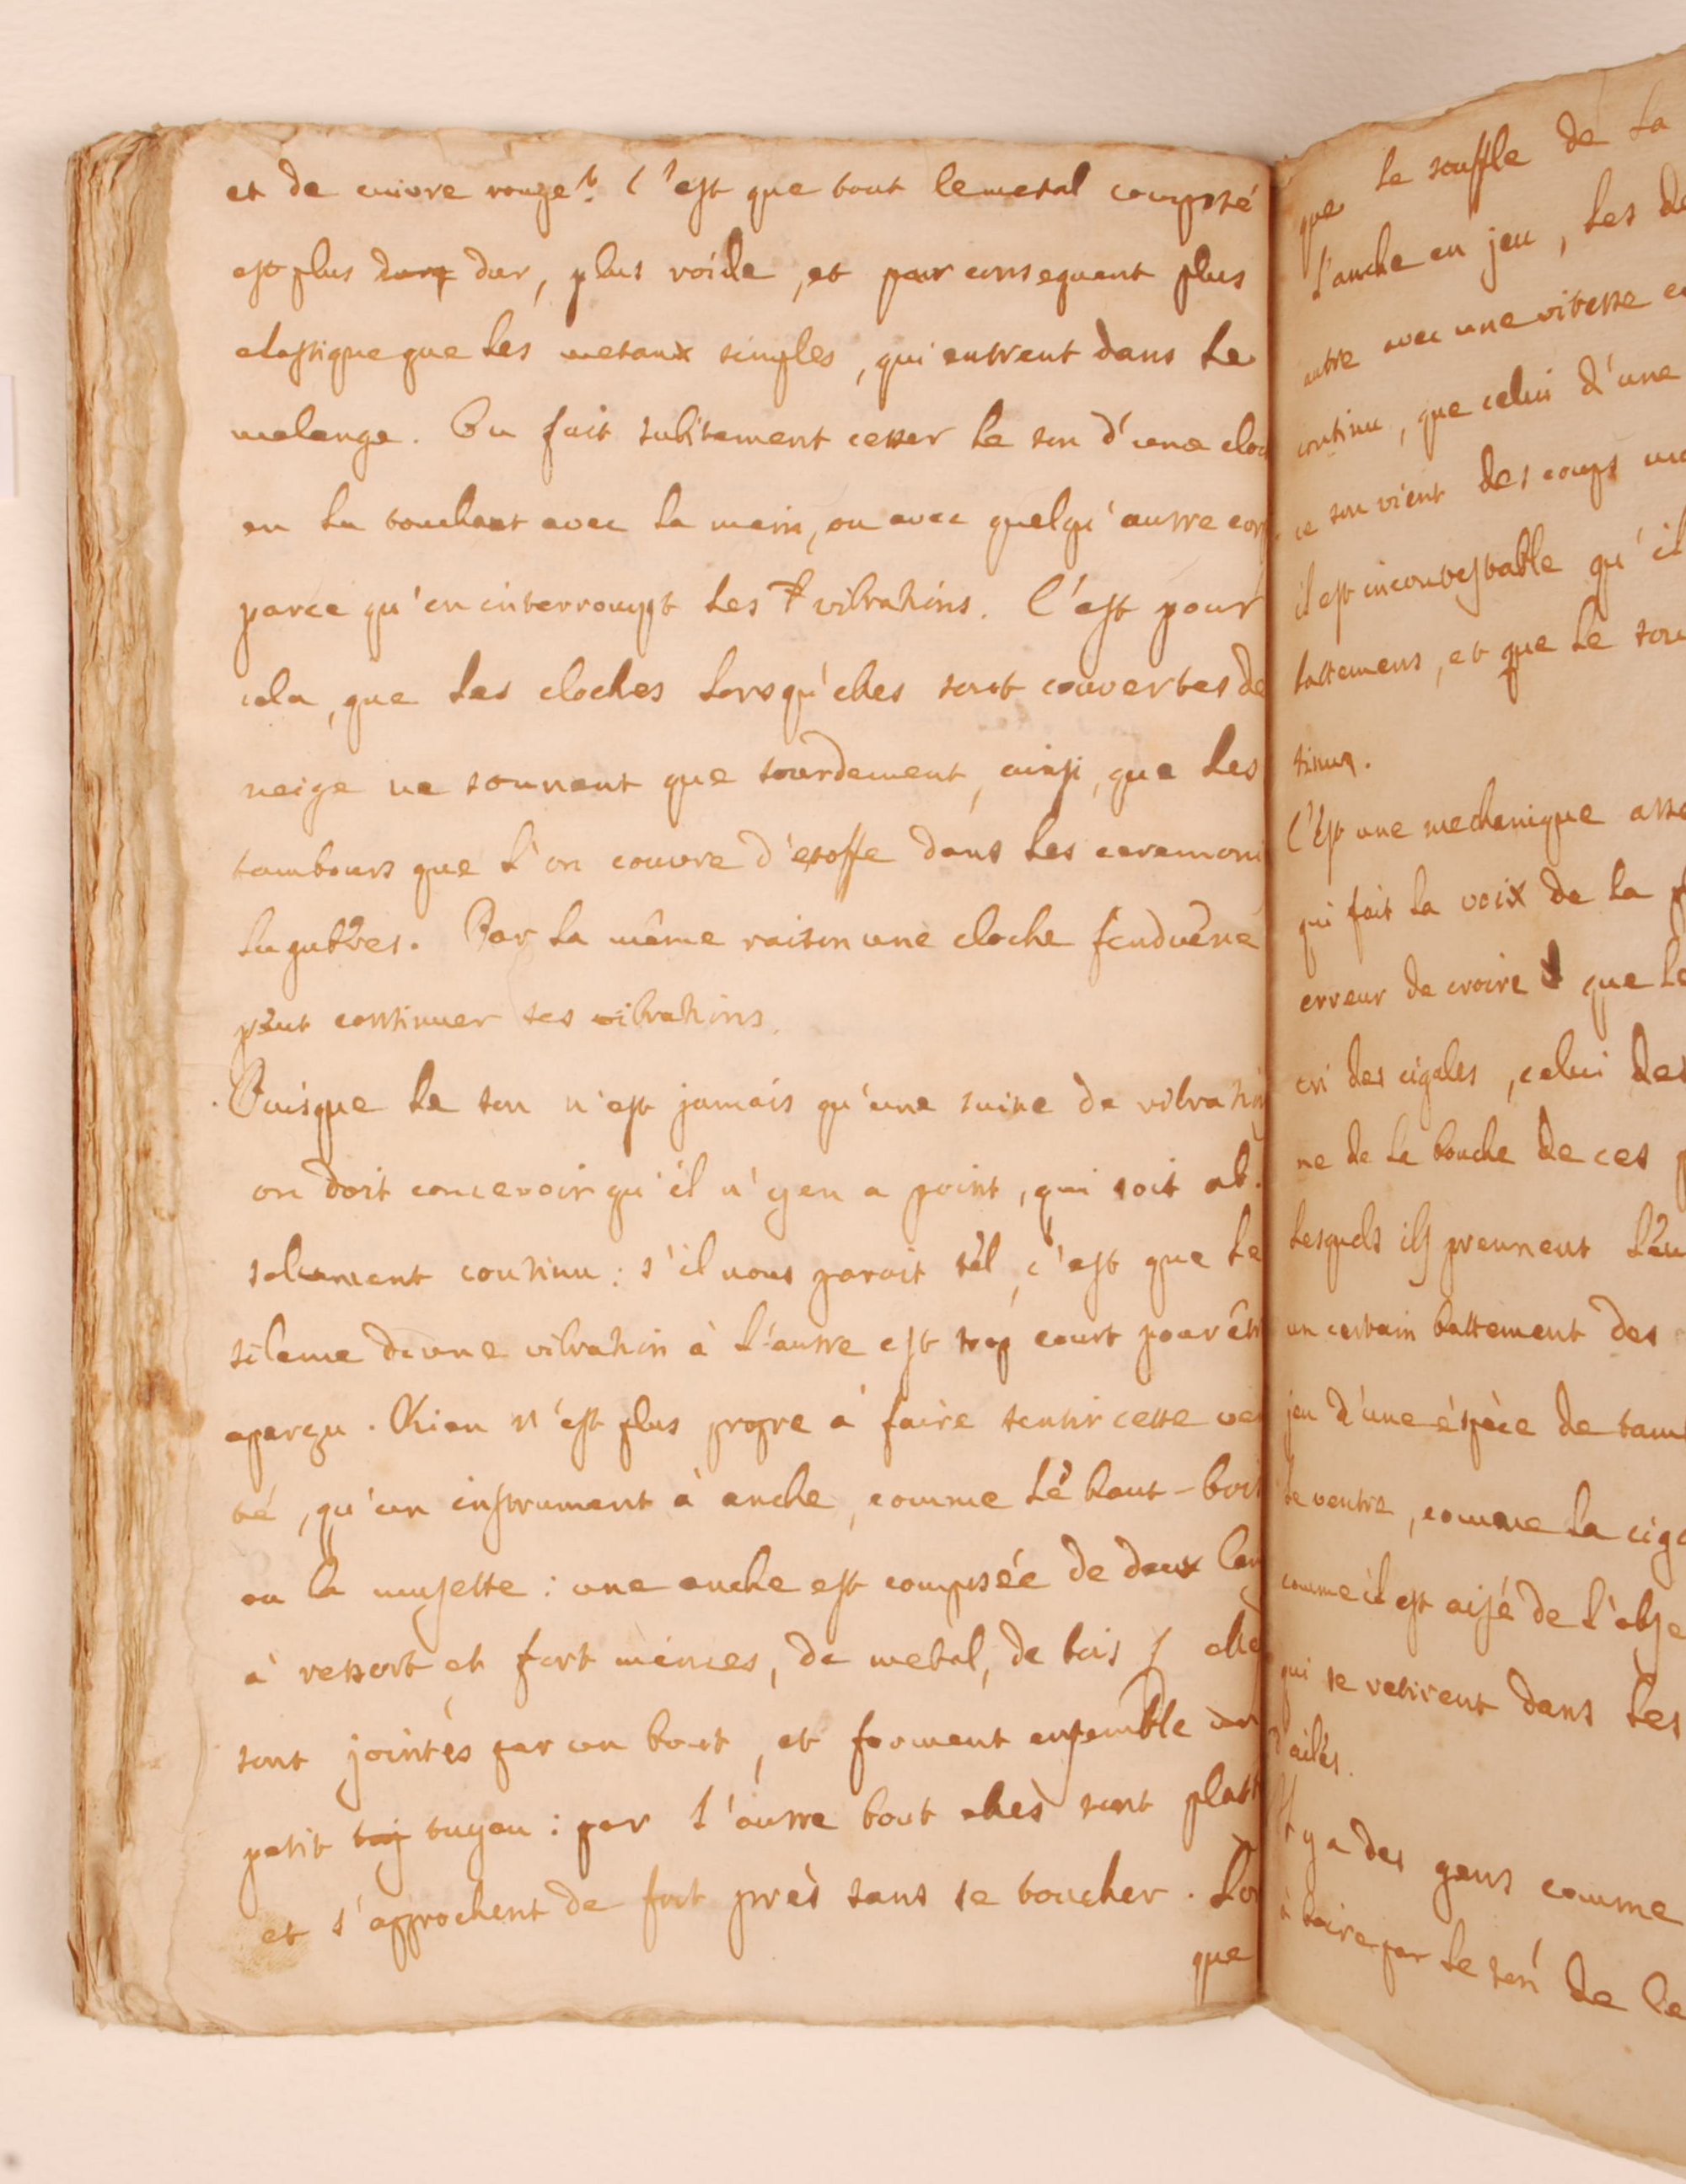 et de cuivre rouge? C'est que tout le metal composé
est plus dur, plus roide, et par consequent plus
elastique que les metaux simples, qui entrent dans le
melange. On fait subitement cesser le son d'une cloc
en la touchant avec la main, ou avec quelqu'autre corp
parce qu'on interrompt les vibrations. C'est pour
cela, que les cloches lorsqu'elles sont couvertes de
neige ne sonnent que sourdement, ainsi, que les
tambours que l'on couvre d'etoffe dans les ceremoni
lugubres. Par la même raison une cloche fenduë ne
peut continuer ses vibrations.
Puisque le son n'est jamais qu'une suite de vibration
on doit concevoir qu'il n'y en a point, qui soit ab-
solument continu: s'il nous paroit tèl, c'est que le
silence d'une vibration à l'autre est trop court pour êtr
aperçu. Rien n'est plus propre à faire sentir cette ver
té, qu'un instrument à anche, comme le haut-bois
ou la musette: une anche est composée de deux lan
à ressort et fort minces, de metal, de bois elle
sont jointes par un bout, et forment ensemble un
petit tuyau: par l'autre bout elles sont platt
et s'approchent de fort près sans se toucher. Lor
que
que le souffle de la
l'anche en jeu, les de
autre avec une vitesse e
continu, que celui d'une
ce son vient des coups
il est incontestable qu'il
battemens, et que le son
tinue.
C'est une mechanique asse
qui fait la voix de la
erreur de croire que le
cri des cigales, celui des
ne de la bouche de ces
lesquels ils prennent l'eu
un certain battement des
jeu d'une éspèce de tam
le ventre, comme la ciga
comme il est aisé de l'obse
qui se retirent dans les
d'ailes.
Il y a des gens comme
à boire par le son de la